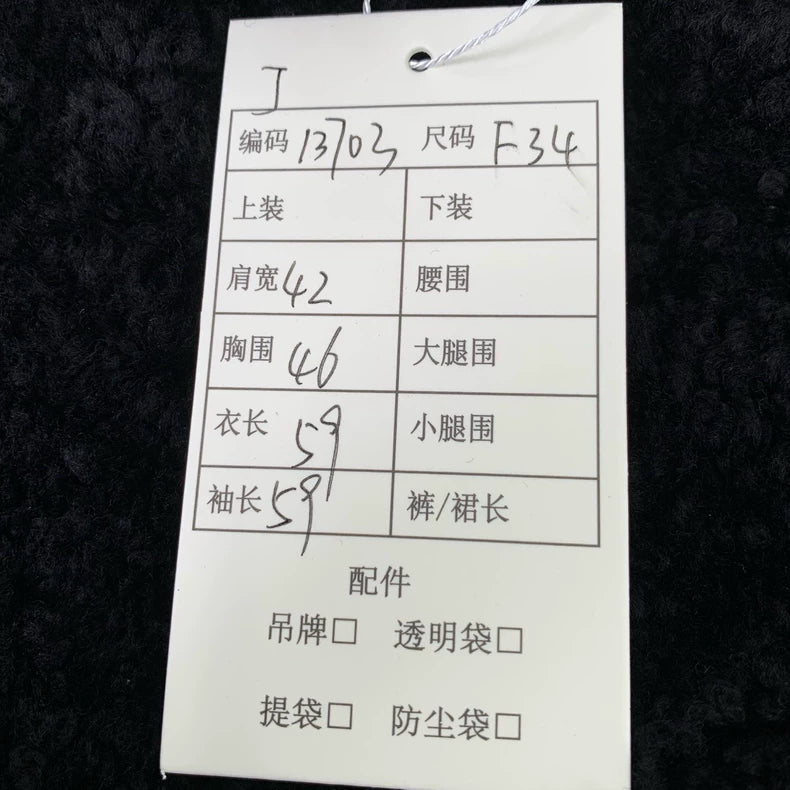 J
编码 13703 尺码 F34
上装 下装
肩宽 42 腰围
胸围 46 大腿围
衣长 59 小腿围
袖长 59 裤/裙长
配件
吊牌□ 透明袋□
提袋□ 防尘袋□